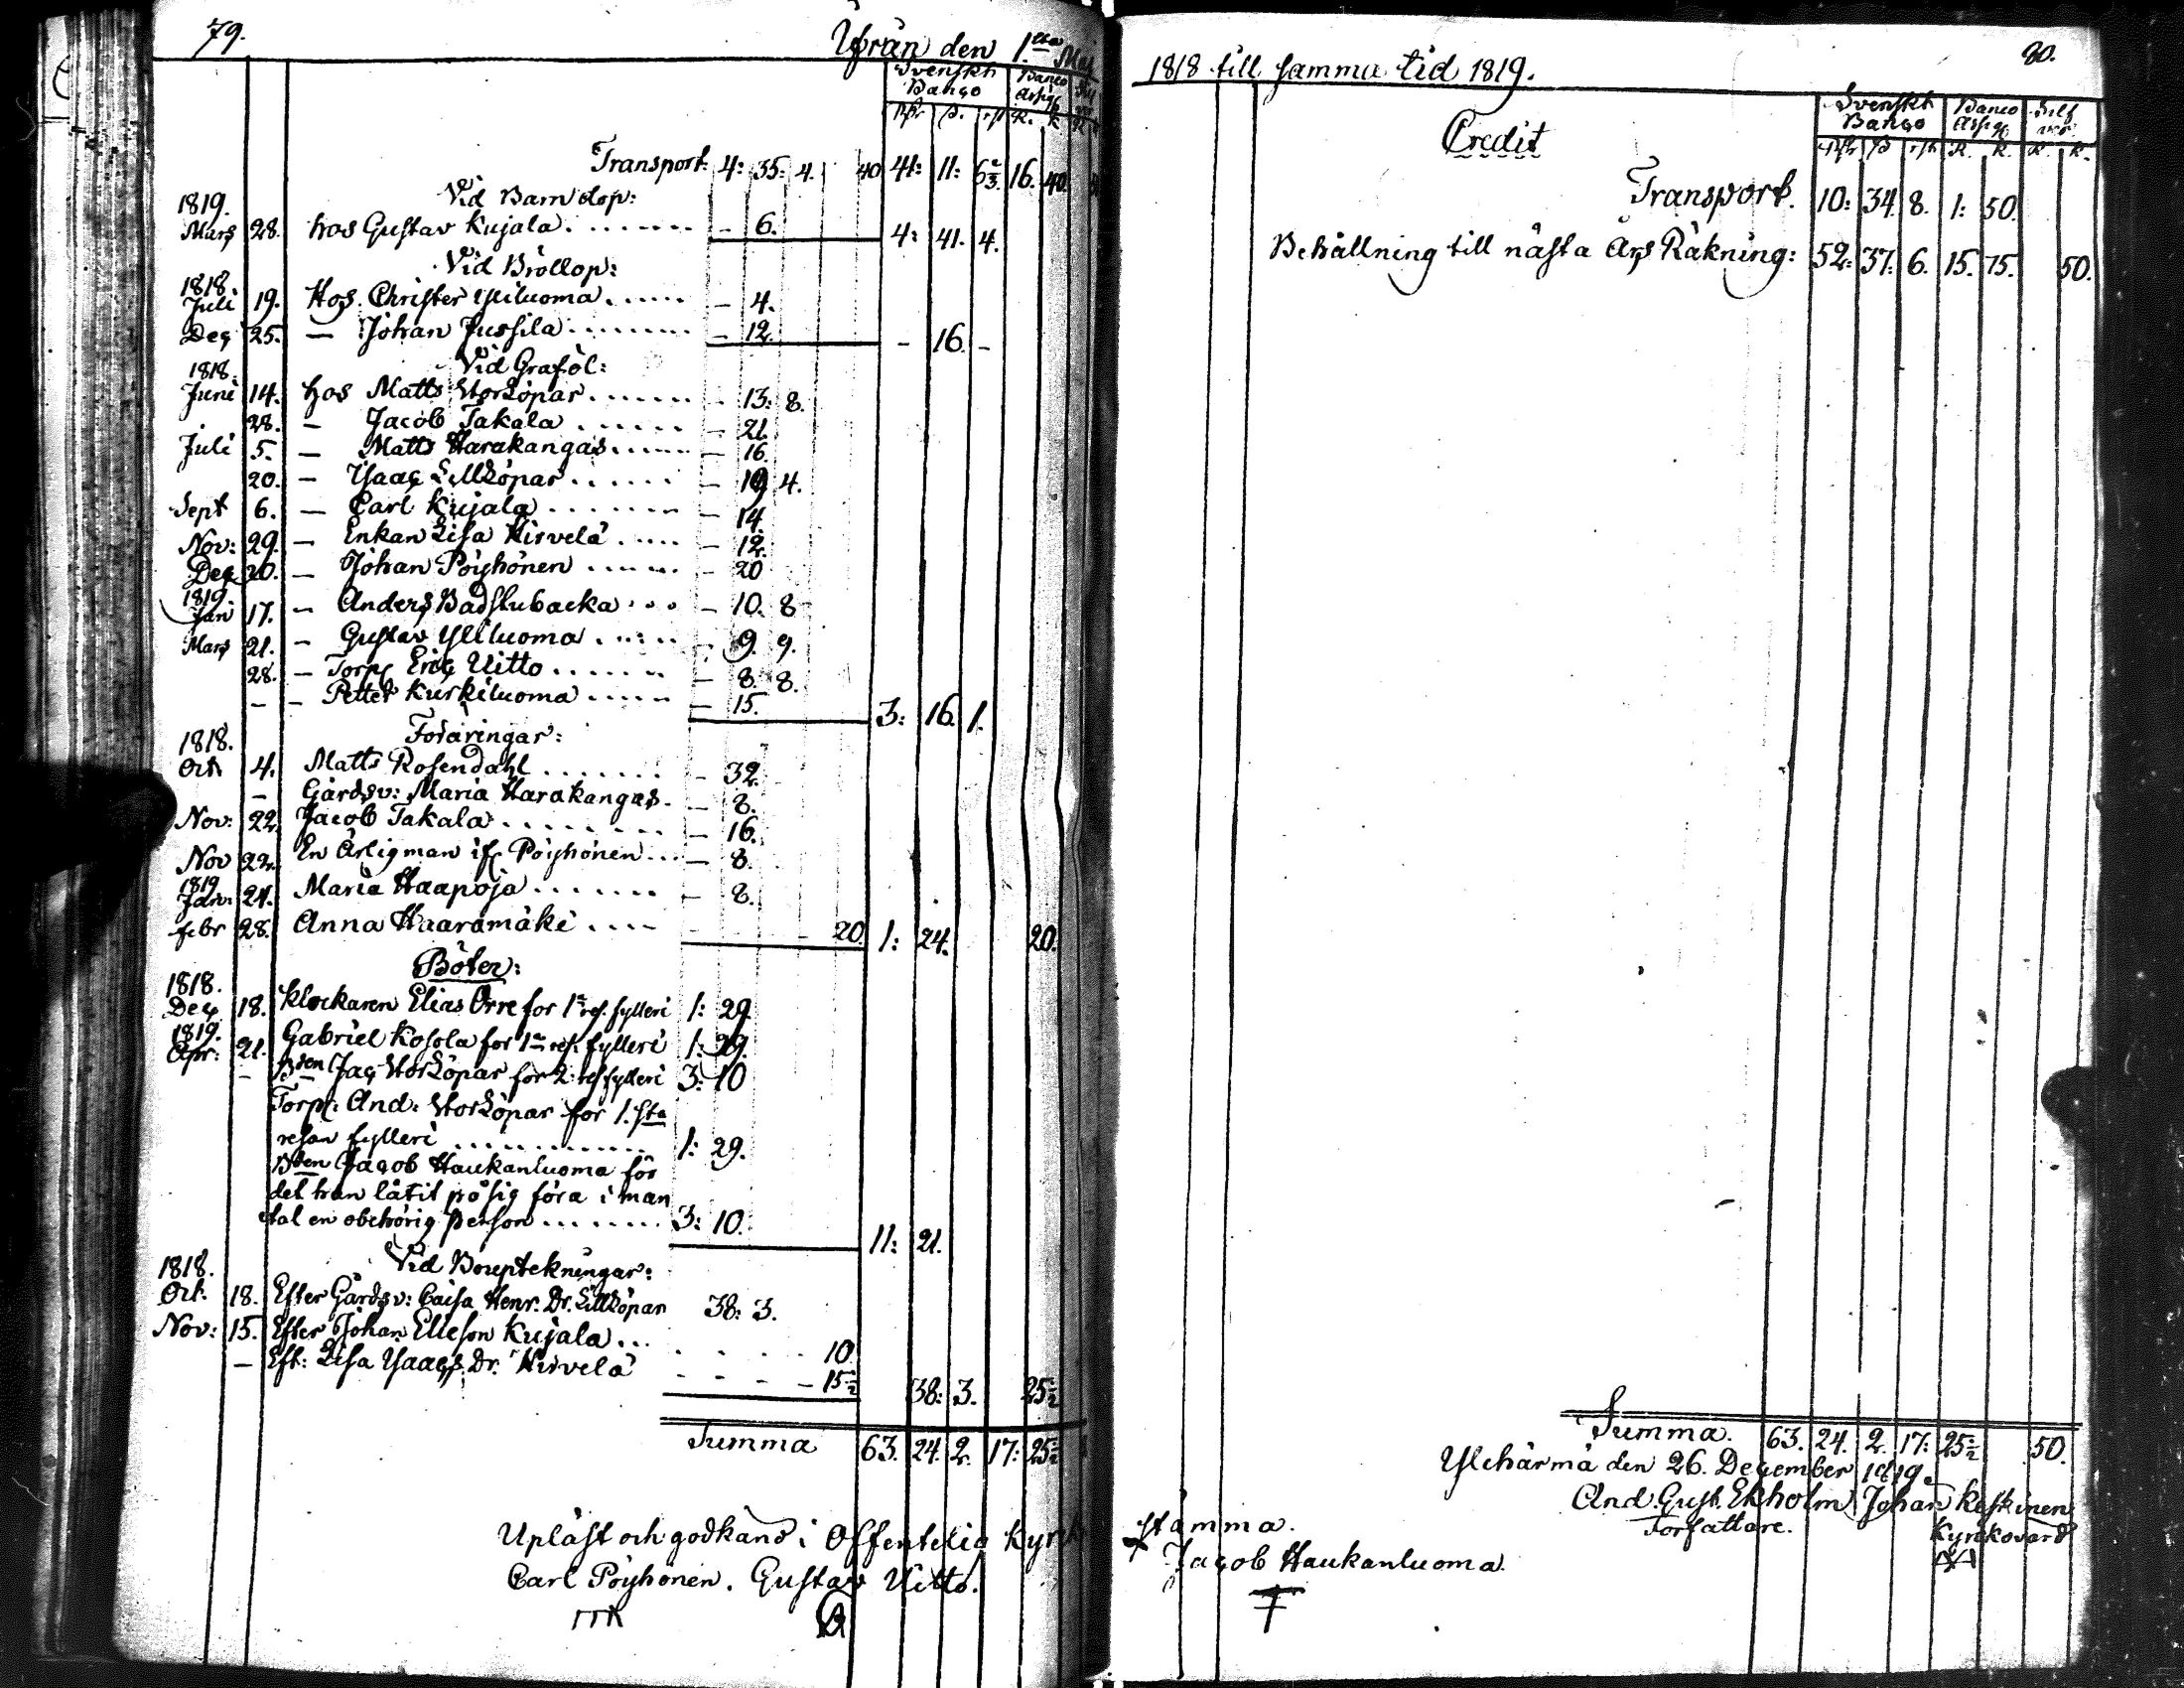 79.
Ifrån den 1sta Maj
Svenskt Banco Banco Assign
Rdr ß. rst R. K
Transport: 4: 35: 4. 40 41: 11: 6 2/3. 16. 40.
Vid Barndop:
1819.
Mars 28. hos Gustav Kujala. . . . . . . . – 6. 4: 41. 4.
Vid Bröllop:
1818.
Juli 19. Hos. Christer Yliluoma. . . . . . – 4.
Dec 25. — Johan Jussila. . . . . . . . . – 12. – 16. –
Vid Graföl:
1818.
Juni 14. hos Matts Storköpar. . . . . . . – 13: 8.
28. – Jacob Takala . . . . . . – 21.
Juli 5. — Matts Harakangas. . . . . . — 16.
20. – Isaac Lillköpar . . . . . . – 19 4.
Sept 6. — Carl Kujala . . . . . . . – 14.
Nov: 29. – Enkan Lisa Hirvelä . . . . . – 12.
Dec 20. – Johan Pöyhönen . . . . . . – 20
1819.
Jan 17. – Anders Badstubacka . . . – 10. 8
Mars 21. – Gustav Yliluoma . . . . . 9. 9.
28. – Torp. Eric Uitto . . . . . . . – 8. 8.
– – Petter Kurkiluoma . . . . . – 15. 3: 16. 1.
Föräringar:
1818.
Oct 4. Matts Rosendahl . . . . . . . – 32.
– Gårdsv: Maria Harakangas. – 8.
Nov: 22. Jacob Takala. . . . . . . . – 16.
Nov 22. En ärlig man if. Pöyhönen . . . – 8.
1819
Janu: 24. Maria Haapoja . . . . . . . – 8.
febr 28. Anna Haaramäki . . . . – 20. 1: 24. 20.
Böter:
1818.
Dec 18. Klockaren Elias Orre for 1a res. fylleri 1: 29.
1819.
Apr: 21. Gabriel Kosola for 1a res. fylleri 1: 29.
– Bden Jac Storköpar för 2: res fylleri 3: 10
Torp: And: Storköpar for 1. sta
resan fylleri . . . . . . . . . . . 1: 29.
Bden Jacob Haukanluoma för
det han låtit på sig föra i man
tal en obehörig person . . . . . . . 3: 10. 11: 21.
Vid Bouptekningar:
1818.
Oct. 18. Efter Gårdsv: Caisa Henr. Dr. Lillköpar 38: 3.
Nov: 15. Efter Johan Elleson Kujala . . . 10
– Eft: Lisa Isaacs. Dr. Hirvelä – – – – 15 1/2 38: 3. 25 1/2
Summa 63. 24. 2. 17: 25 1/2
Upläst och godkänd i Offentelig Kyrk
Carl Pöyhönen. Gustav Uitto.
80.
1818 till samma tid 1819.
Credit
Svenskt Banco Banco Assig. Silf ver
Rdr ß rst R. K. R. K.
Transport. 10: 34. 8. 1: 50.
Behållning till nästa Års Räkning: 52: 37: 6. 15. 75. 50.
Summa. 63. 24. 2. 17: 25 1/2 50.
Ylehärmä den 26. December 1819.
And. Gust. Ekholm Johan Keskinen
Författare. Kyrkovärd
stämma.
Jacob Haukanluoma.